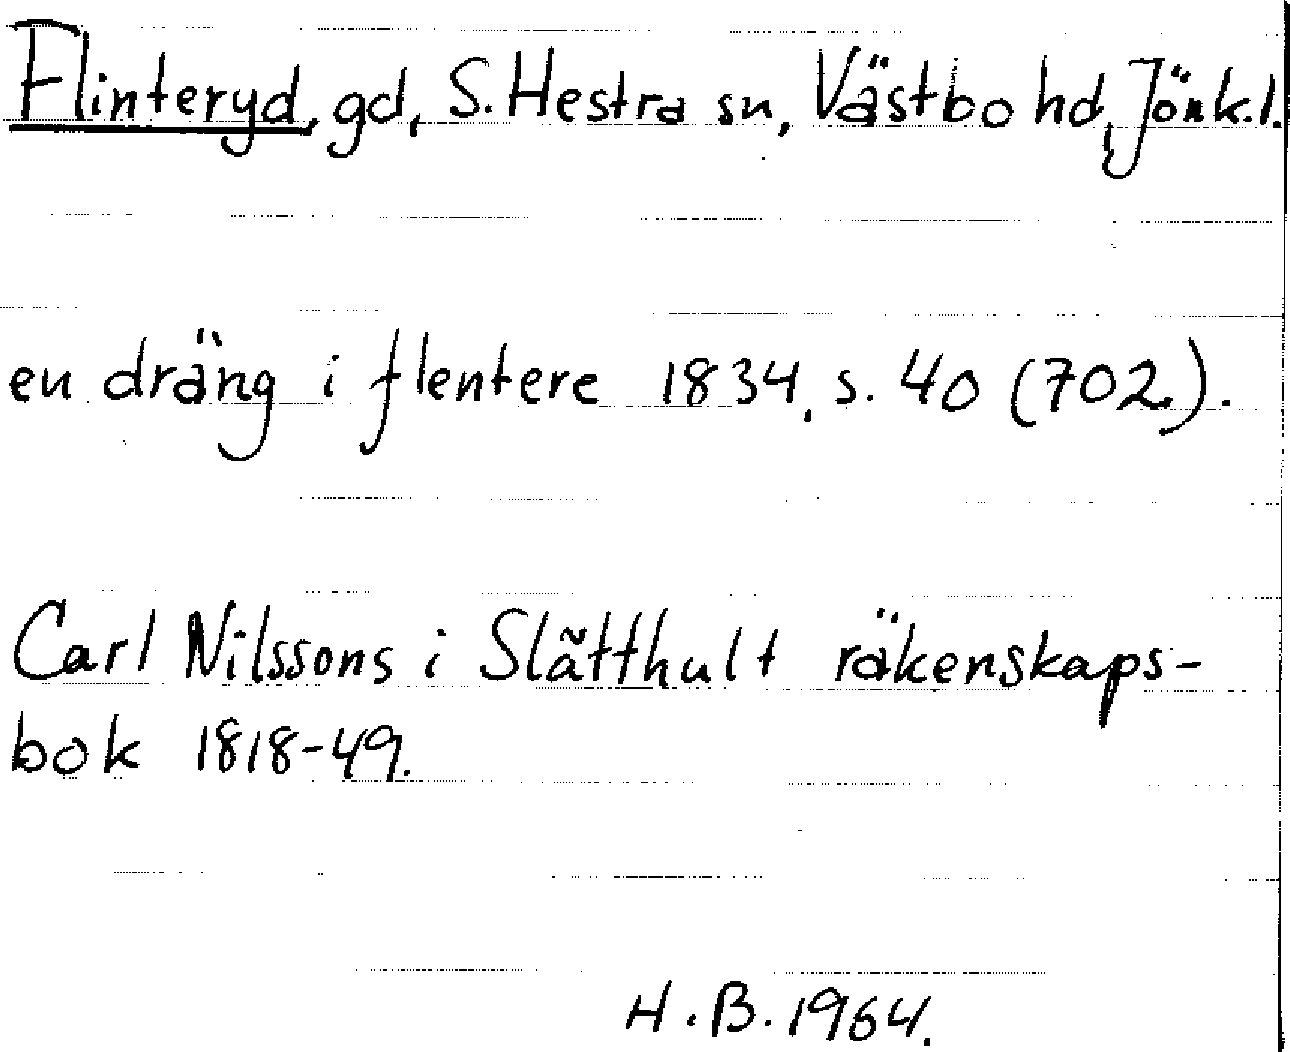 Flinteryd, gd, S. Hestra sn, Västbo hd, Jönk. l.
en dräng i flentere 1834, s. 40 (702).
Carl Nilssons i Slätthult räkenskaps-
bok 1818-49.
H. B. 1964.